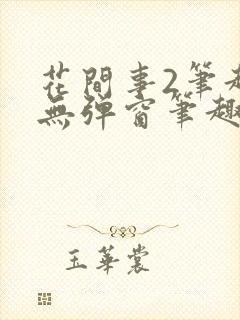 花間事2筆趣
無彈窗筆趣
玉華裳